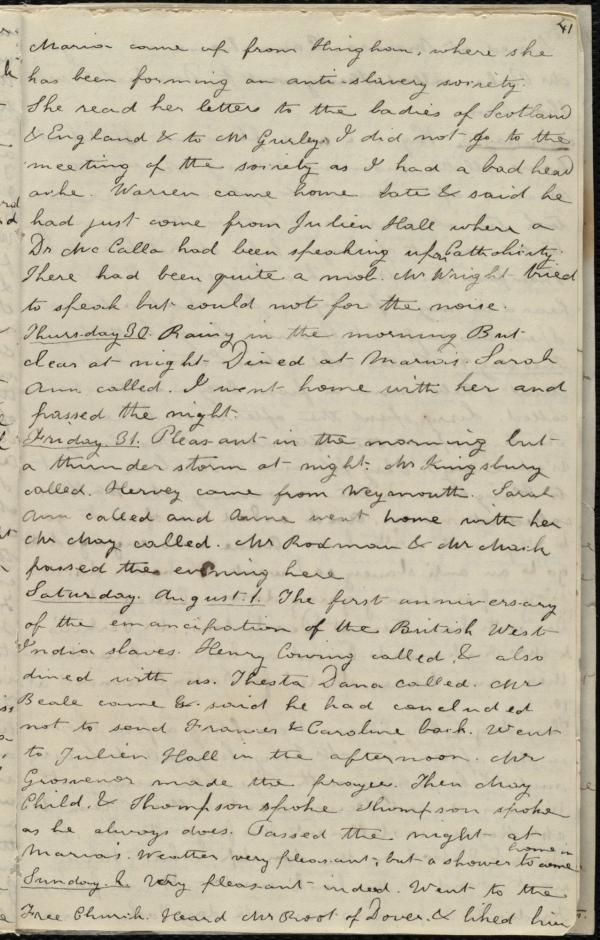 41
Maria came up from Hingham, where she
has been forming an anti-slavery society.
She read her letters to the ladies of Scotland
& England & to Mr Gurley. I did not go to the
meeting of the society as I had a bad head
ache. Warren came home late & said he
had just come from Julien Hall where a
Dr McCalla had been speaking upon Catholicity.
There had been quite a mob. Mr Wright tried
to speak but could not for the noise.
Thursday 30. Rainy in the morning But
clear at night Dined at Maria's. Sarah
Ann called. I went home with her and
passed the night.
Friday 31. Pleasant in the morning but
a thunder storm at night. Mr Kingsbury
called. Hervey came from Weymouth. Sarah
Ann called and Anne went home with her
Mr May called. Mr Rodman & Mr
passed the evening here
Saturday. August. 1. The first anniversary
of the emancipation of the British West
India slaves. Henry Cowing called, & also
dined with us. Thesta Dana called. Mr
Beale came & said he had concluded
not to send Frances & Caroline back. Went
to Julien Hall in the afternoon. Mr
Grosvenor made the prayer. Then May
Child, & Thompson spoke. Thompson spoke
as he always does. Passed the night at
Maria's. Weather very pleasant, but a shower to come home in
Sunday. 2. Very pleasant indeed. Went to the
Free Church. Heard Mr Root of Dover. & liked him